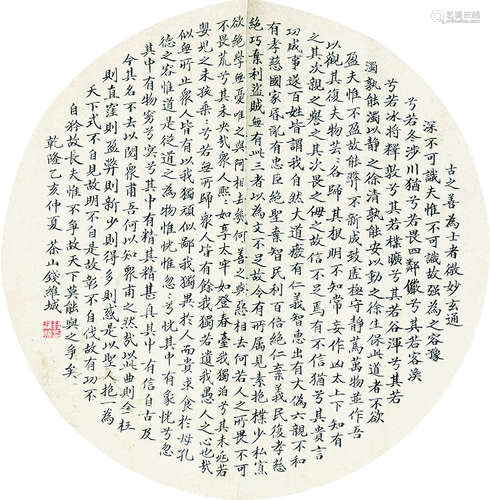 古之善為士者微妙玄通
深不可識夫惟不可識故强為之容豫
兮若冬涉川猶兮若畏四鄰儼兮其若容渙
兮若冰將釋敦兮其若樸曠兮其若谷渾兮其若
濁孰能濁以靜之徐清孰能安以動之徐生保此道者不欲
盈夫惟不盈故能弊不新成致虛極守靜篤萬物並作吾
以觀其復夫物芸：各歸其根明不知常妄作凶太上下知有
之其次親之譽之其次畏之侮之故信不足焉有不信猶兮其貴言
功成事遂百姓皆謂我自然大道廢有仁義智惠出有大偽六親不和
有孝慈國家昬亂有忠臣絕聖棄智民利百倍絕仁棄義民復孝慈
絕巧棄利盜賊無有此三者以為文不足故令有所属見素抱樸少私寡
欲絕學無憂唯之與阿相去幾何善之與惡相去何若人之所畏不可
不畏荒兮其未央哉衆人熙：如享太牢如登春臺我獨泊兮其未兆若
嬰児之未孩乘：兮若無所歸衆人皆有餘我獨若遺我愚人之心也哉
似無所止衆人皆有以我獨頑似鄙我獨異於人而貴求食於母孔
德之容惟道是從道之為物惟怳惟忽：兮怳其中有象怳兮忽
其中有物窈兮冥兮其中有精其精甚真其中有信自古及
今其名不去以閱衆甫吾何以知衆甫之然哉以此曲則全枉
則直窪則盈弊則新少則得多則惑是以聖人抱一為
天下式不自見故明不自是故彰不自伐故有功不
自矜故長夫惟不爭故天下莫能與之爭矣
乾隆乙亥仲夏 茶山錢維城